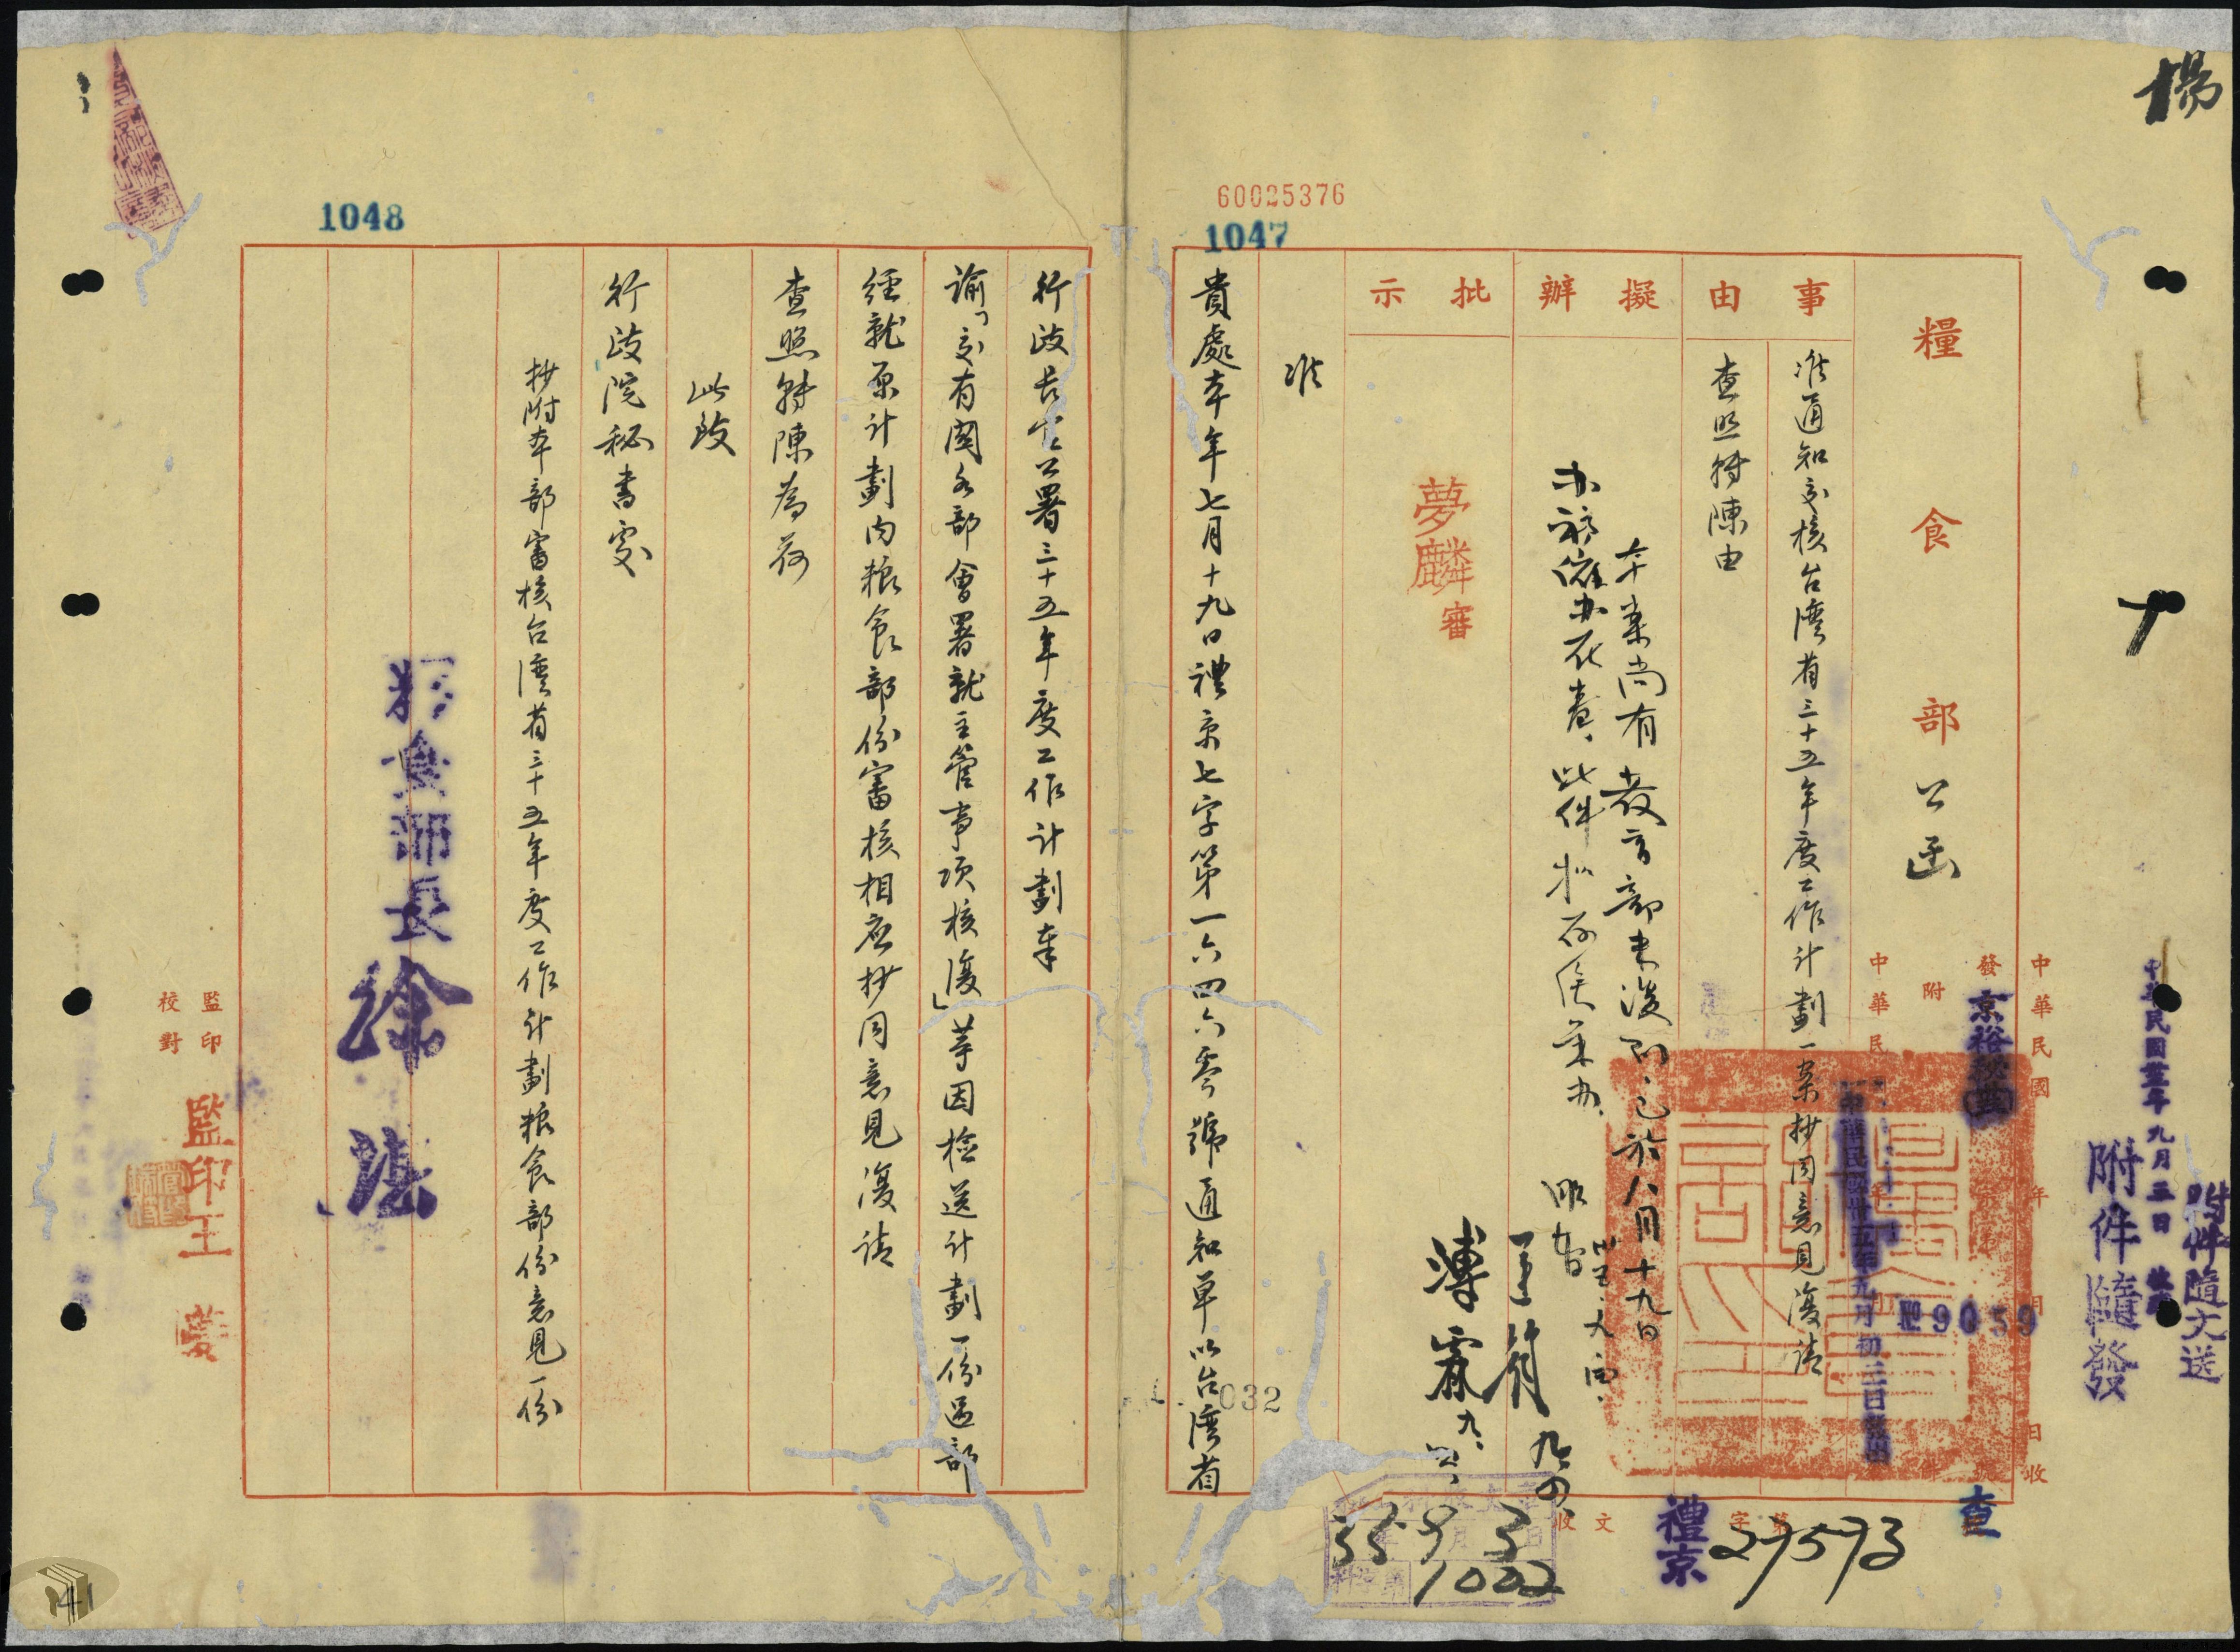 楊
60025376
1047
糧食部公函
事由
准通知交核台灣省三十五年度工作計劃一案抄同意見復請
查照轉陳由
擬辦
本案尚有教育部未復到已於八月十九日
办稿催办在卷此件拟存俟彙办
批示
夢麟審
准
貴處本年七月十九日禮京七字第一六四六零號通知單以台灣省
中華民國 年 月 日收
發
附 件
京裕
中華民國卅五年九月初三日發出
9059
中華民國卅五年九月三日
附件隨文送
附件隨發
查
收文 字第
禮京
27573
35 9 3
1002
032
1048
行政長官公署三十五年度工作計劃奉
諭「交有関各部會署就主管事項核復」等因檢送計劃一份過部
經就原計劃内粮食部份審核相應抄同意見復請
查照轉陳為荷
此致
行政院秘書處
抄附本部審核台灣省三十五年度工作計劃粮食部份意見一份
糧食部長徐堪
監印
校對
監印王
141